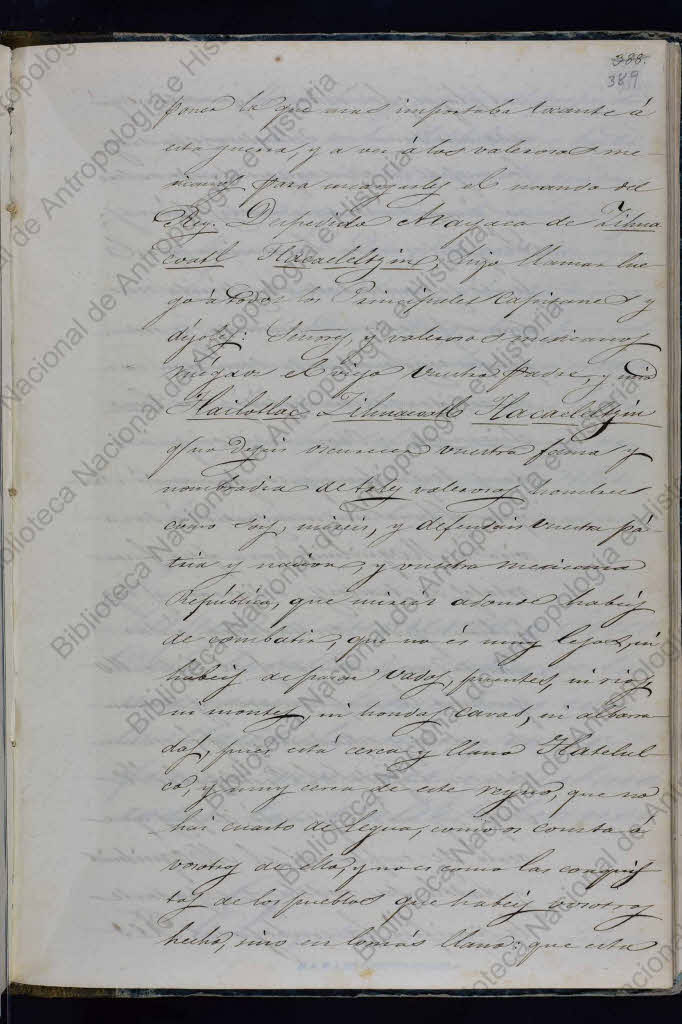 388.
389
poner lo que mas importaba tocante á
esta guerra, y a ver á los valerosos me-
xicanos para encargarles el mando del
Rey. Despedido Axayaca de Zihua
coatl Tlacaeleltzin, hizo llamar lue
go á todos los Principales Capitanes y
dijoles: Señores y valerosos mexicanos
ruégaos el viejo vuestro padre, y mio
Tlailotlac Zihuacoatl Tlacaeleltzin
que no dejeis oscurecer vuestra fama y
nombradia de tales valerosos hombres
como sois, mireis, y defendais vuestra pá-
tria y nacion, y vuestra mexicana
República, que mirais adonde habeis
de combatir, que no és muy lejos, ni
habeis de pasar vados, puentes, ni rios,
ni montes, ni hondas cavas, ni albarra
das, pues está cerca y llano Tlatelul
co, y muy cerca de este reyno, que no
hai cuarto de legua, como os consta á
vosotros de ello, y no es como las conquis
tas de los pueblos que habeis vosotros
hecho, sino en lo más llano: que esta
Biblioteca Nacional de Antropología e Historia